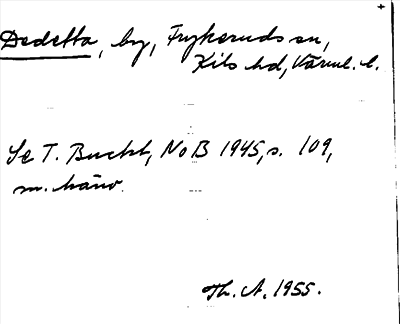 Dedetta, by, Frykeruds sn,
Kils hd, Värml. l.
Se T. Bucht, NoB 1945, s. 109,
m. hänv.
Th. A. 1955.